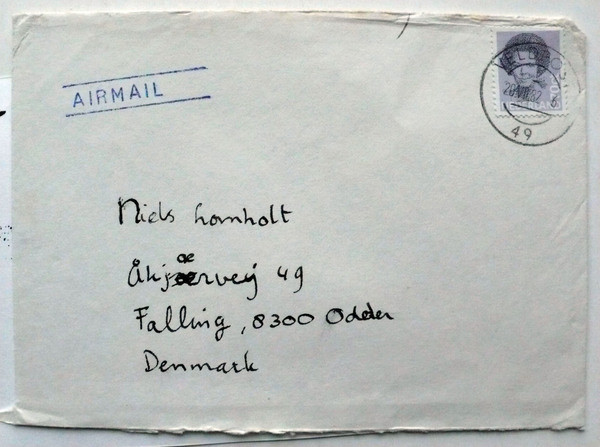 AIRMAIL
49
Niels Lomholt
Åkjaervej 49
Falling, 8300 Odder
Denmark